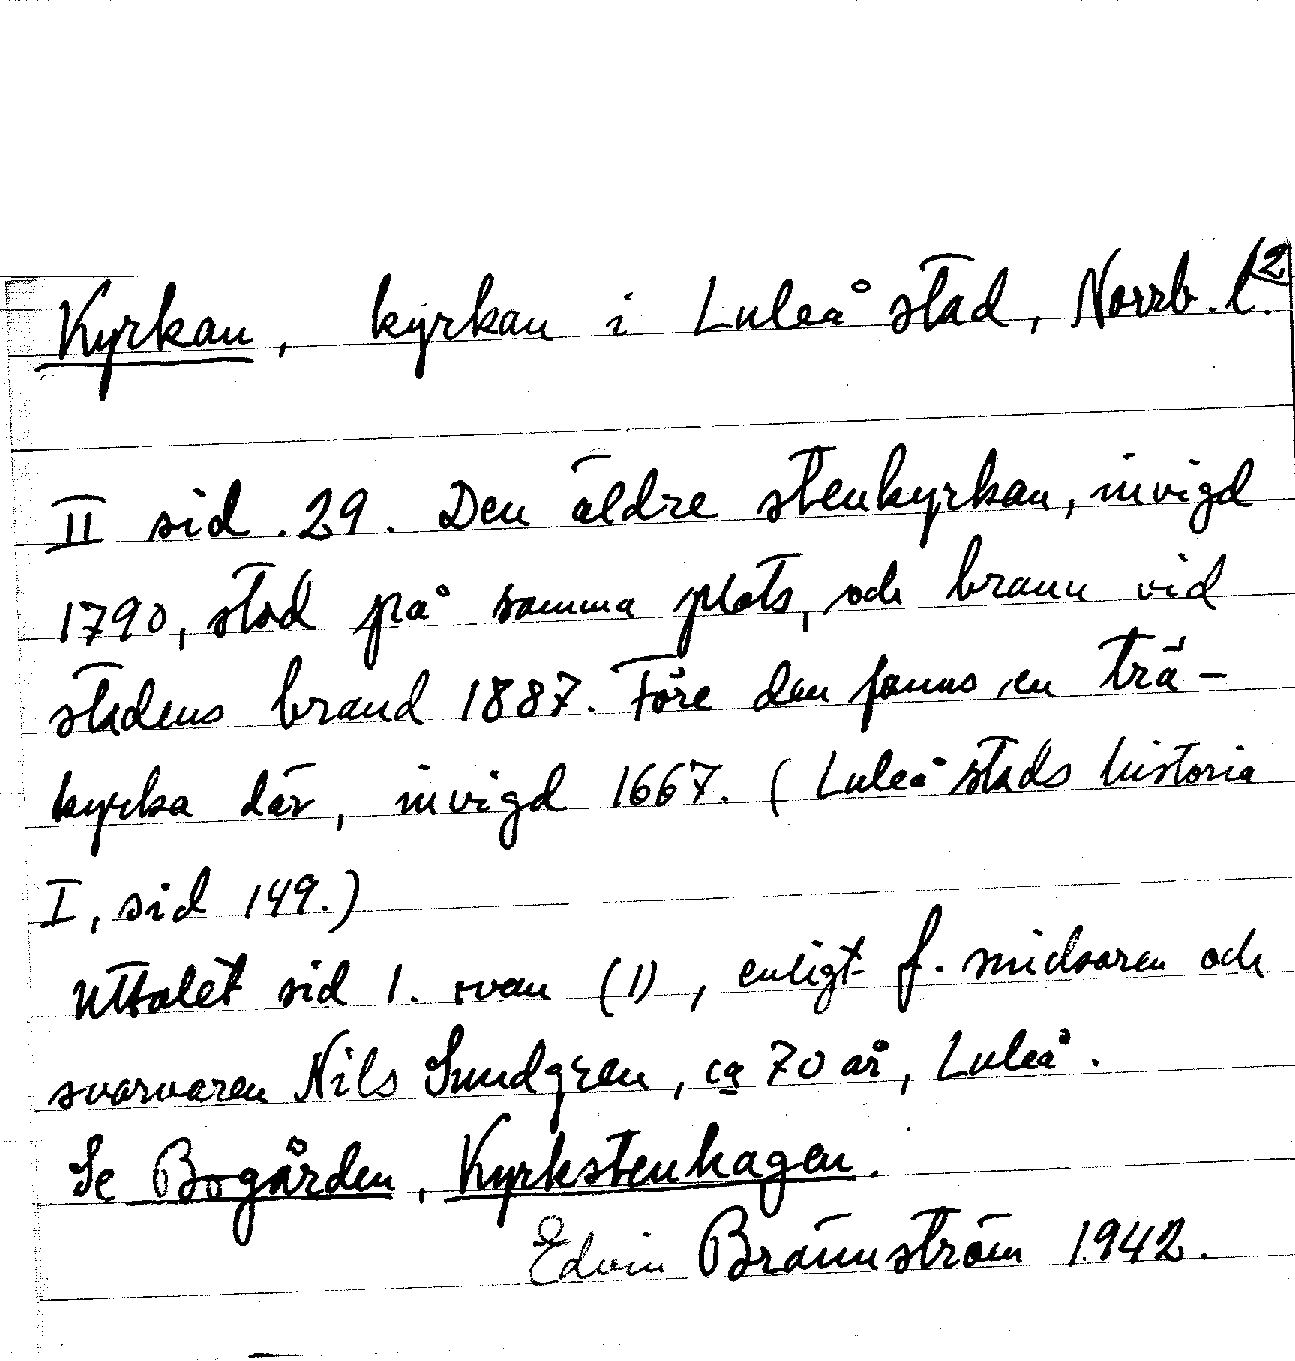 Kyrkan, kyrkan i Luleå stad, Norrb. l. 2
II sid. 29. Den äldre stenkyrkan, invigd
1790, stod på samma plats, och brann vid
stadens brand 1887. Före den fanns en trä-
kyrka där, invigd 1667. (Luleå stads historia
I, sid 149.)
Uttalet sid 1. ovan (1), enligt f. smidaren och
svarvaren Nils Sundgren, ca 70 år, Luleå.
Se Bogården, Kyrkstenhagen.
Edvin Brännström 1942.